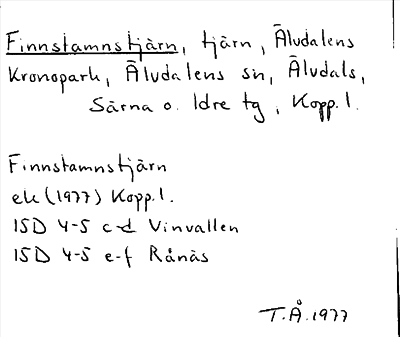 Finnstamnstjärn, tjärn, Äludalens
Kronopark, Äludalens sn, Äludals,
Särna o. Idre tg, Kopp. l.
Finnstamnstjärn
ek (1977) Kopp. l.
15D 4-5 c-d Vinvallen
15D 4-5 e-f Rånäs
T.Å. 1977